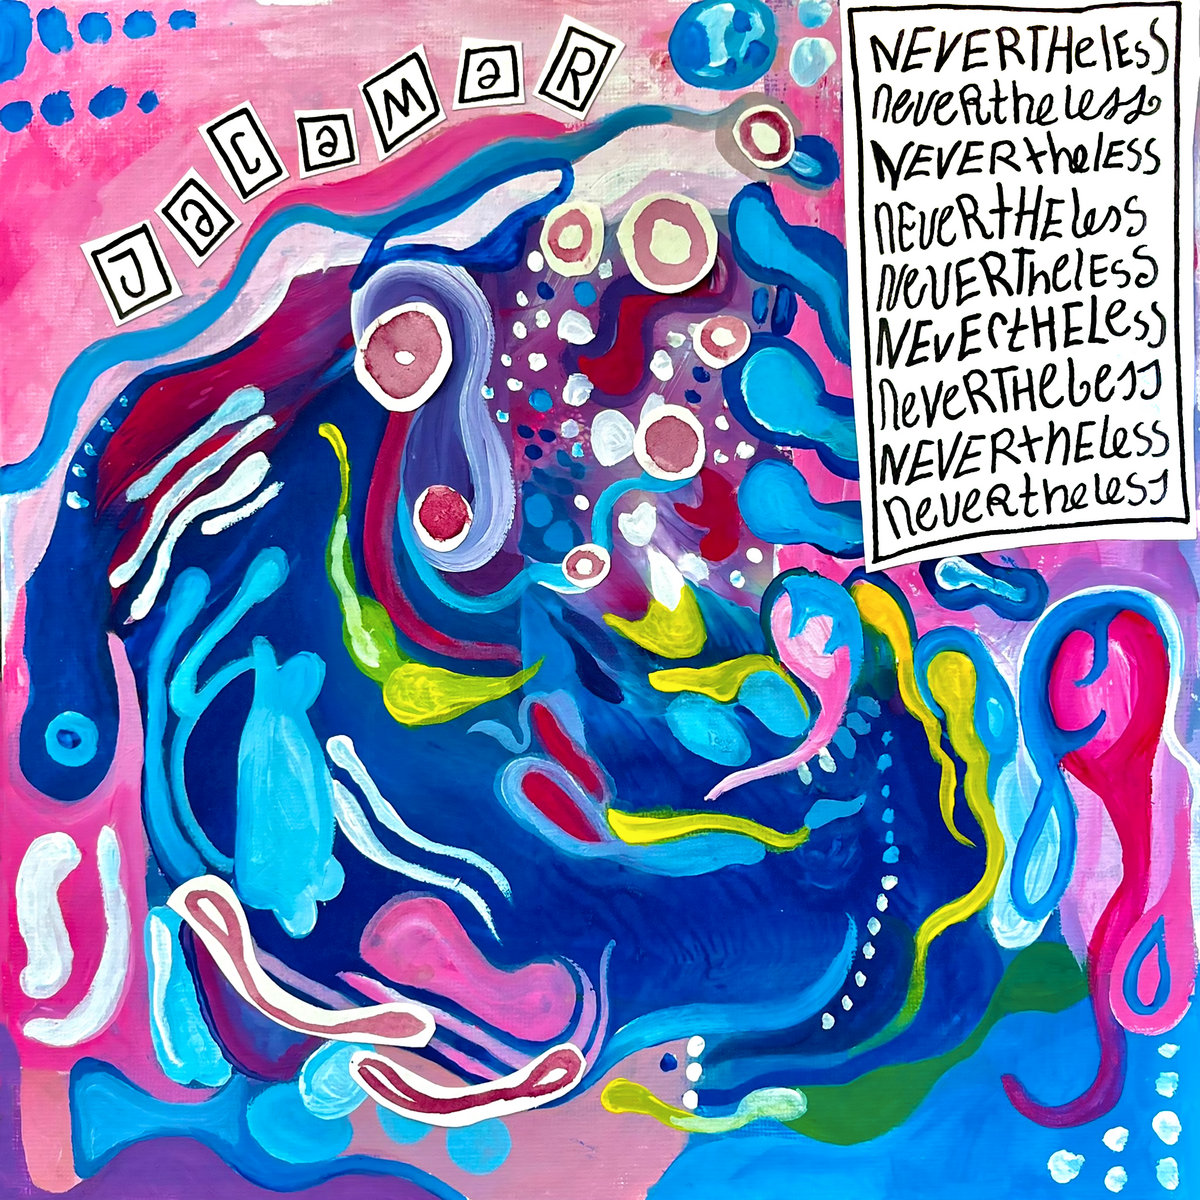 JaCaMaR
NEVERTHelESS
neveRtheless
NEVERthelESS
nEUeRtHELess
NeVERTheLESS
NEVErtHELess
neveRTHeLess
NEVERthEless
nevertheless